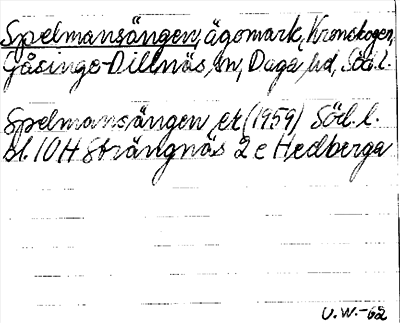 Spelmansängen, ägomark, Kronskogen,
Gåsinge-Dillnäs sn, Daga hd, Södl.
Spelmansängen ek (1959) Södl.
bl. 10H Strängnäs 2e Hedberga
U.W.-62